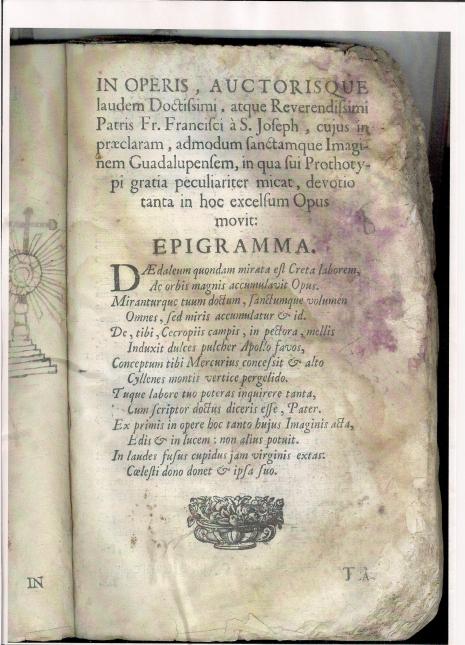 IN OPERIS, AUCTORISQUE
laudem Doctiſsimi, atque Reverendiſsimi
Patris Fr. Franciſci à S. Joſeph, cujus in
præclaram, admodum ſanctamque Imagi-
nem Guadalupenſem, in qua ſui Prothoty-
pi gratia peculiariter micat, devotio
tanta in hoc excelſum Opus
movit:
EPIGRAMMA.
DÆdaleum quondam mirata eſt Creta laborem,
Ac orbis magnis accumulavit Opus.
Miranturque tuum doctum, ſanctumque volumen
Omnes, ſed miris accumulatur & id.
De, tibi, Cecropiis campis, in pectora, mellis
Induxit dulces pulcher Apollo favos,
Conceptum tibi Mercurius conceſsit & alto
Cyllenes montis vertice pergelido.
Tuque labore tuo poteras inquirere tanta,
Cum ſcriptor doctus diceris eſſe, Pater.
Ex primis in opere hoc tanto hujus Imaginis acta,
Edis & in lucem: non alius potuit.
In laudes fuſus cupidus jam virginis extas:
Cœleſti dono donet & ipſa ſuo.
IN